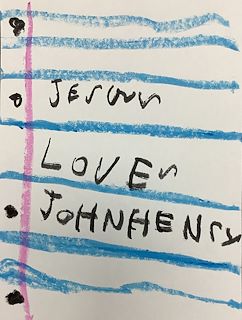 JESUS
LOVES
JOHNHENRY